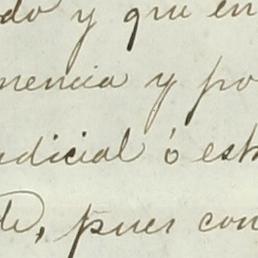 do y que en
nencia y po
udicial ó est
de, pues con